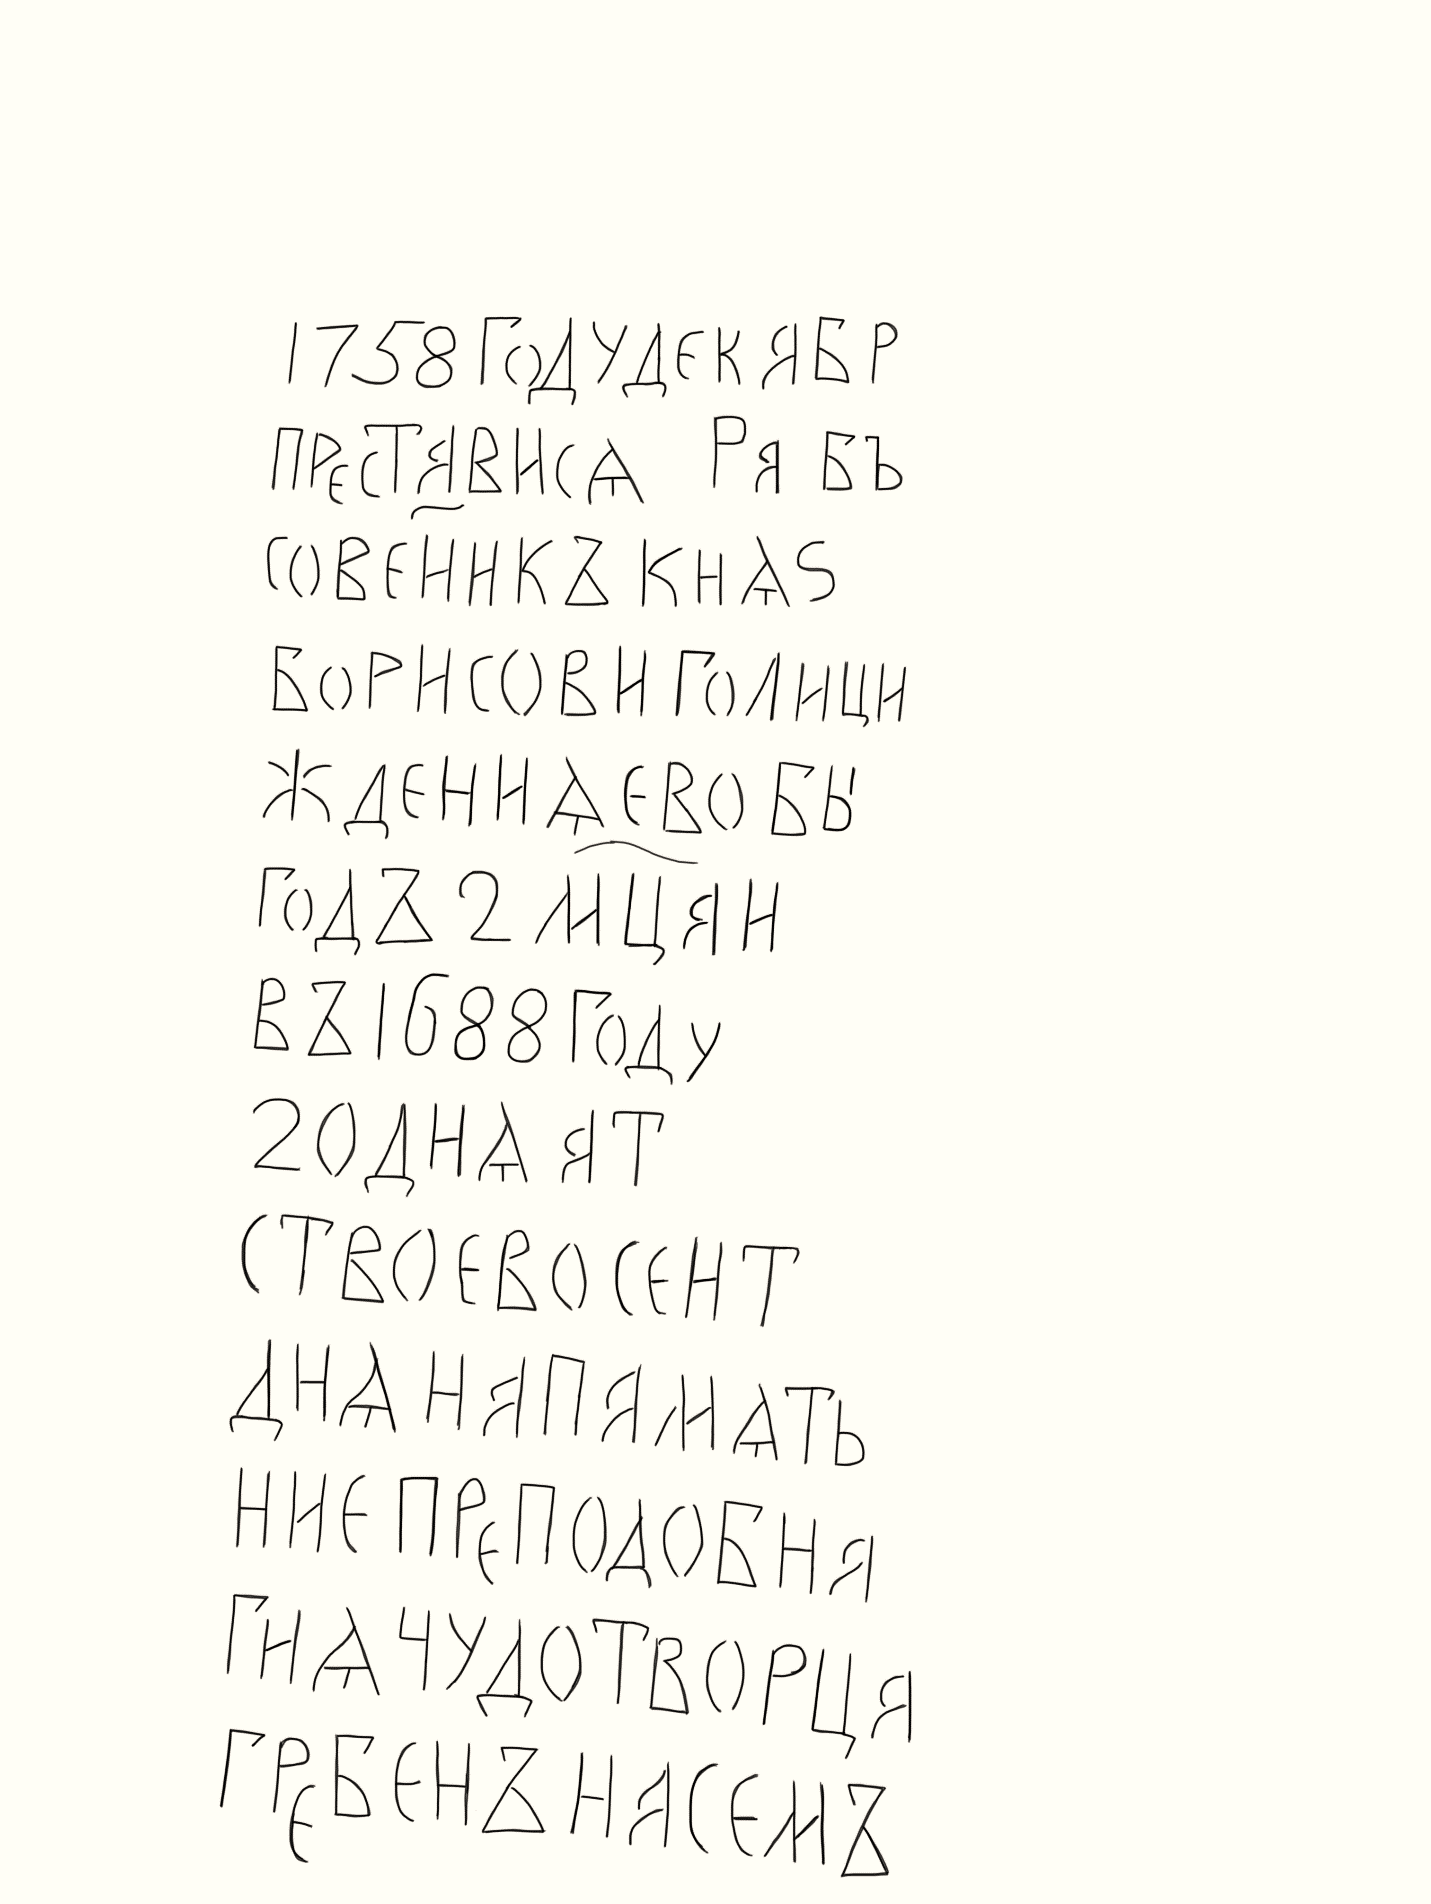 1758 ГОДУ ДЕКЯБР
ПРЕСТЯВИСѦ РЯБЪ
СОВЕНИКЪ КНѦЅ
БОРИСОВИ ГОЛИЦИ
ЖДЕНИѦ ЕВО БЫ
ГОДЪ 2 МЦ ЯН
ВЪ 1688 ГОДУ
20 ДНѦ ЯТ
СТВО ЕВО СЕНТ
ДНѦ НЯ ПЯМѦТЬ
НИЕ ПРЕПОДОБНЯ
ГИѦ ЧУДОТВОРЦЯ
ГРЕБЕНЪ НЯ СЕМЪ